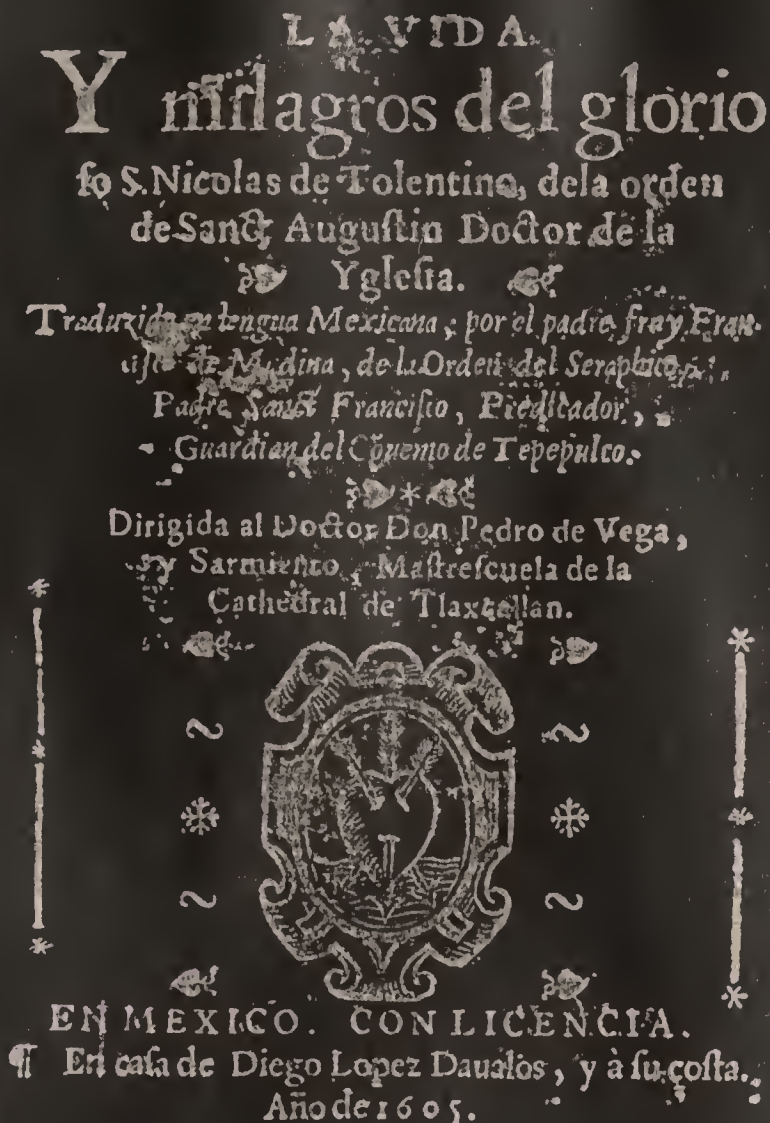 LA VIDA
Y milagros del glorio
ſo S. Nicolas de Tolentino, dela orden
de Sanct Auguſtin Doctor de la
Ygleſia.
Traduzida en lengua Mexicana, por el padre fray Fran-
ciſco de Medina, de la Orden del Seraphico
Padre Sanct Franciſco, Predicador,
Guardian del Cõuento de Tepepulco.
Dirigida al Doctor Don Pedro de Vega,
y Sarmiento, Maſtreſcuela de la
Cathedral de Tlaxcallan.
EN MEXICO. CON LICENCIA.
¶ En caſa de Diego Lopez Daualos, y à ſu coſta.
Año de 1605.